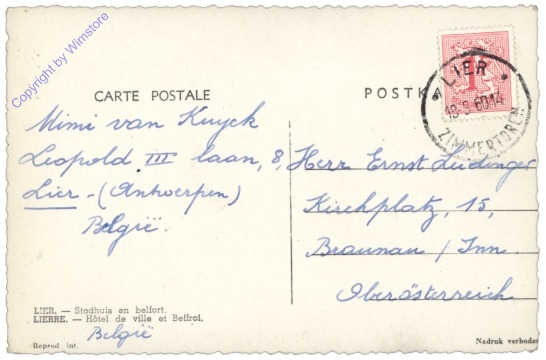 Copyright by Winstore
CARTE POSTALE
POSTKA
LIER
18-9 60 14
ZIMMERTOREN
1F
Mimi van Kuyck
Leopold III laan, 8,
Lier - (Antwerpen)
België.
Herr Ernst Leidinger
Kirchplatz, 15,
Braunau / Inn
Oberösterreich
LIER. — Stadhuis en belfort.
LIERRE. — Hôtel de ville et Beffroi.
België
Reprod int.
Nadruk verboden